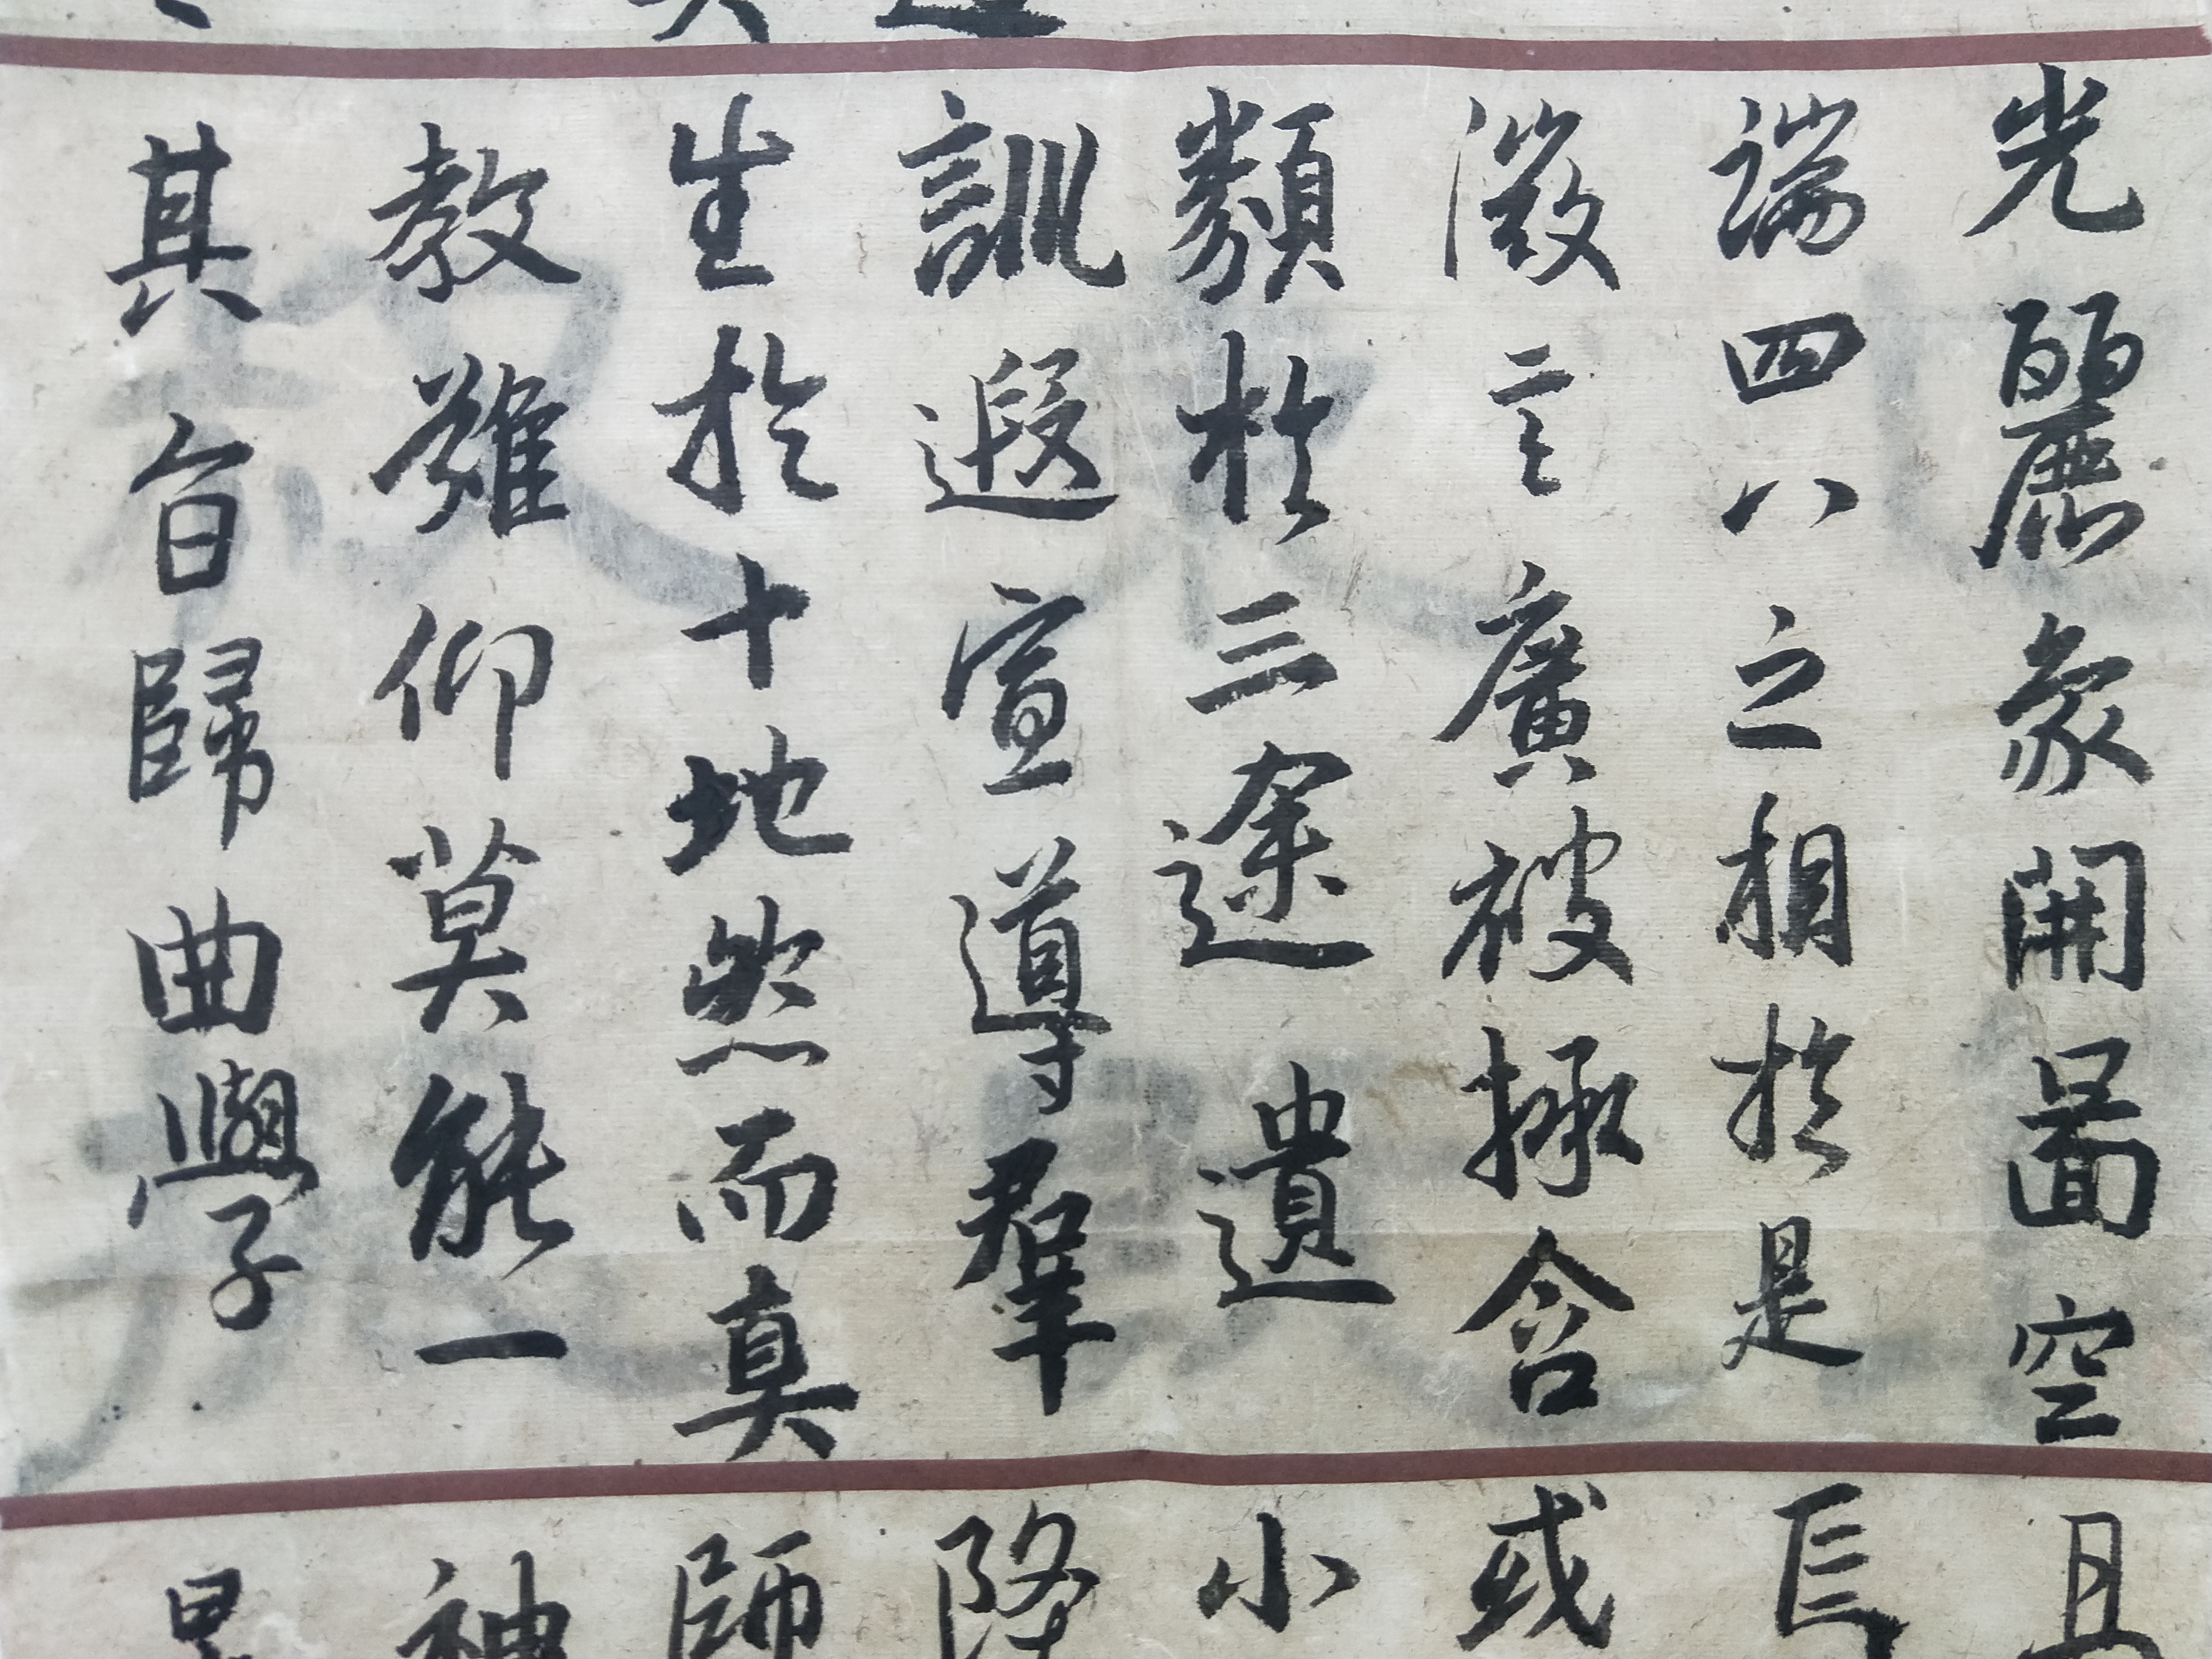 光麗象開圖空
端四八之相於是
微言廣被拯含
類於三途遺
訓遐宣導羣
生於十地然而真
教難仰莫能一
其旨歸曲學
或
小
師
神